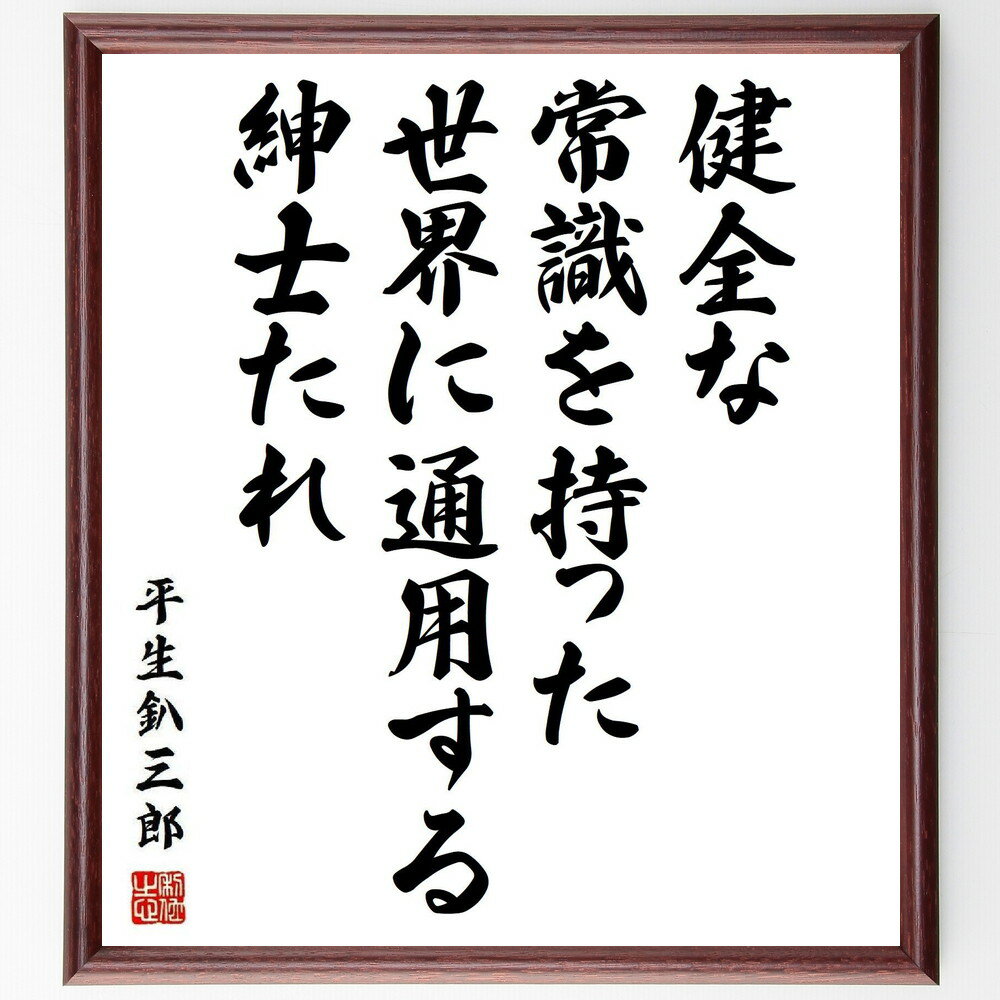 健全な
常識を持った
世界に通用する
紳士たれ
平生釟三郎